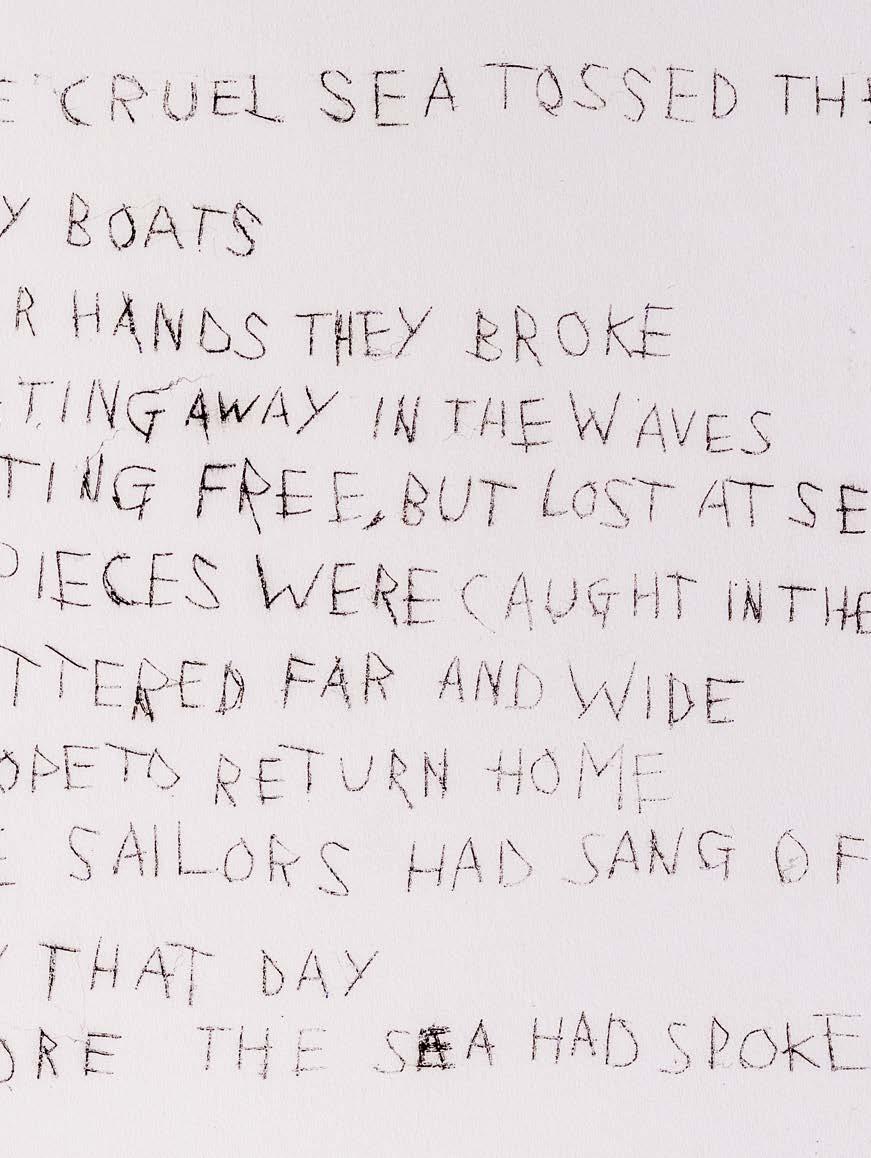 E CRUEL SEA TOSSED THE
Y BOATS
R HANDS THEY BROKE
TING AWAY IN THE WAVES
TING FREE, BUT LOST AT SE
PIECES WERE CAUGHT IN THE
TTERED FAR AND WIDE
OPE TO RETURN HOME
E SAILORS HAD SANG OF
Y THAT DAY
ORE THE SEA HAD SPOKE